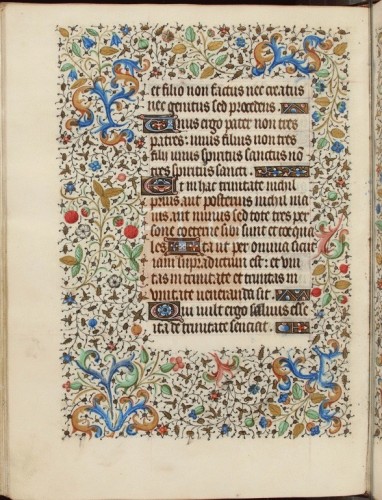 et filio non factus nec creatus
nec genitus sed procedens.
Unus ergo pater non tres
patres: unus filius non tres
filij unus spiritus sanctus nō
tres spiritus sancti.
Et in hac trinitate nichil
prius aut posterius nichil ma
ius aut minus sed tote tres per
sone coeterne sibi sunt et coequa
les Ita ut per omnia sicut
iam supradictum est: et uni
tas in trinitate et trinitas in
unitate veneranda sit.
Qui vult ergo saluus esse
ita de trinitate senciat.